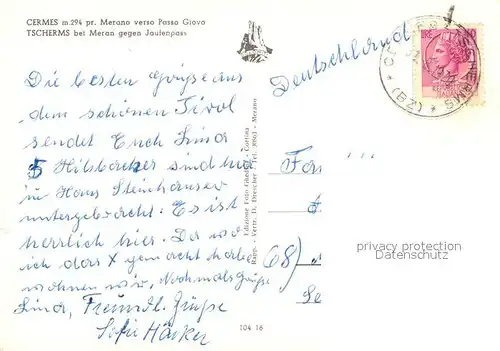 CERMES m.294 pr. Merano verso Passo Giovo
TSCHERMS bei Meran gegen Jaufenpass
Deutschland
LIRE
Die besten Grüsse aus
dem schönen Tirol
sendet Euch Lina
5 Hilsbacher sind hier
im Haus Steinhauser
untergebracht. Es ist
herrlich hier. Da wo
ich das X gemacht habe
wohnen wir. Nochmals Grüsse
Lina, Freundl. Grüße
Sofie Häcker
Edizione Foto Ghedina - Cortina
Rapp. - Vertr. D. Drescher - Tel. - Merano
Fam
68)
privacy protection
Datenschutz
104 16